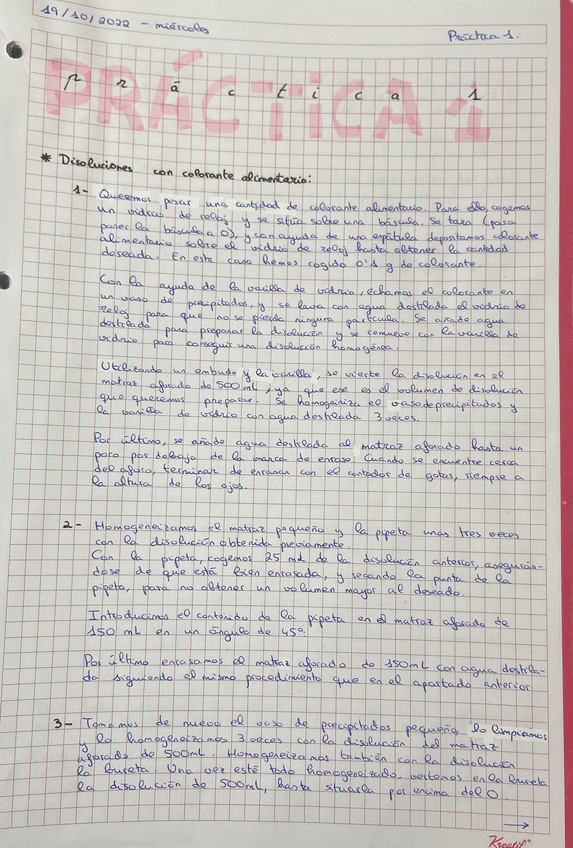 19/10/2022 - miércoles
Práctica 1.
PRÁCTICA 1
p r á c t i c a 1
* Disoluciones con colorante alimentario:
1- Queremos pesar una cantidad de colorante alimentario. Para ello, cogemos
un vidrio de reloj y se sitúa sobre una báscula. Se tara (para
poner la báscula a 0), y con ayuda de una espátula depositamos colorante
alimentario sobre el vidrio de reloj hasta obtener la cantidad
deseada. En este caso hemos cogido 0'1 g de colorante.
Con la ayuda de la varilla de vidrio, echamos el colorante en
un vaso de precipitados, y se lava con agua destilada el vidrio de
reloj para que no se pierda ninguna partícula. Se añade agua
destilada para preparar la disolución y se remueve con la varilla de
vidrio para conseguir una disolución homogénea.
Utilizando un embudo y la varilla, se vierte la disolución en el
matraz aforado de 500 mL, ya que ese es el volumen de disolución
que queremos preparar. Se homogeiniza el vaso de precipitados y
la varilla de vidrio con agua destilada 3 veces.
Por último, se añade agua destilada al matraz aforado hasta un
poco por debajo de la marca de enrase. Cuando se encuentre cerca
del aforo, terminar de enrasar con el contador de gotas, siempre a
la altura de los ojos.
2- Homogeneizamos el matraz pequeño y la pipeta unas tres veces
con la disolución obtenida previamente.
Con la pipeta, cogemos 25 mL de la disolución anterior, asegurán-
dose de que está bien enrasada, y secando la punta de la
pipeta, para no obtener un volumen mayor al deseado.
Introducimos el contenido de la pipeta en el matraz aforado de
150 mL en un ángulo de 45º.
Por último enrasamos el matraz aforado de 150mL con agua destila-
da siguiendo el mismo procedimiento que en el apartado anterior.
3- Tomamos de nuevo el vaso de precipitados pequeño, lo limpiamos
y lo homogeneizamos 3 veces con la disolución del matraz
aforado de 500mL. Homogeneizamos también con la disolución
la bureta. Una vez esté todo homogeneizado, vertemos en la bureta
la disolución de 500mL, hasta situarla por encima del 0.
→
Kreatif